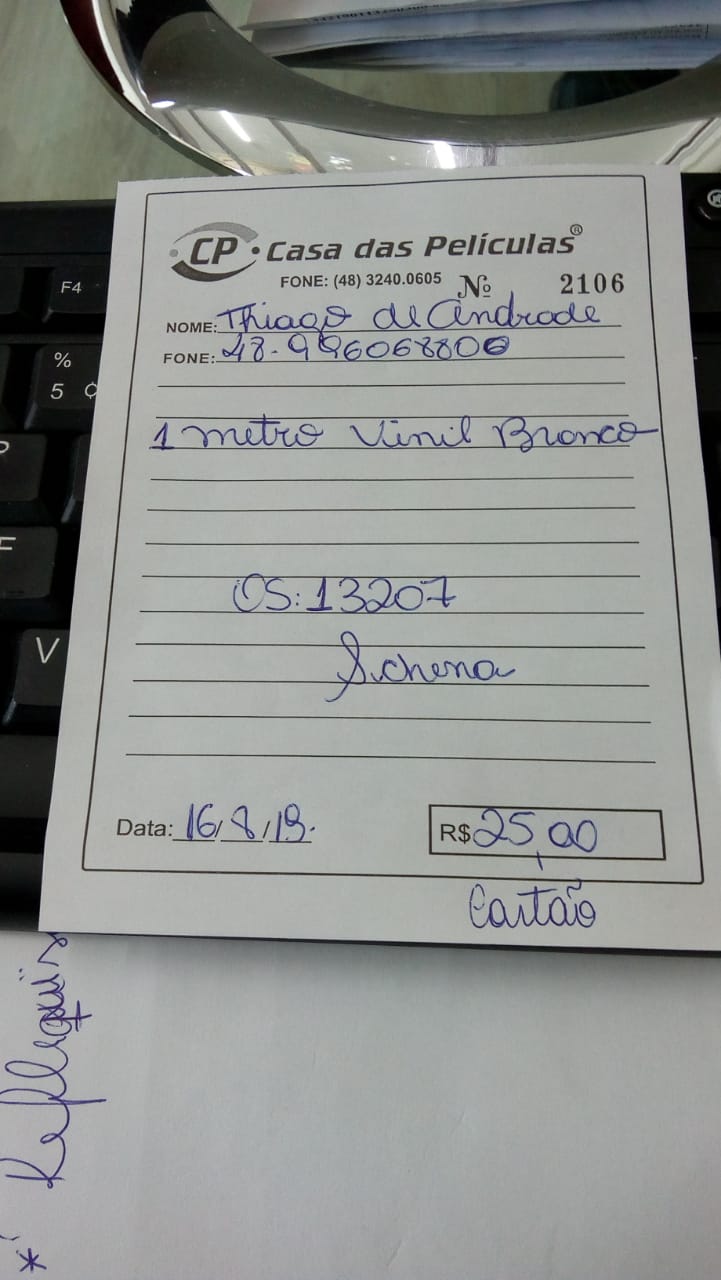 CP Casa das Películas®
FONE: (48) 3240.0605 Nº 2106
NOME: Thiago de Andrade
FONE: 48-996068800
1 metro Vinil Branco
OS: 13207
Schena
Data: 16/8/19.
R$ 25,00
Cartão
F4
%
5 ¢
F
V